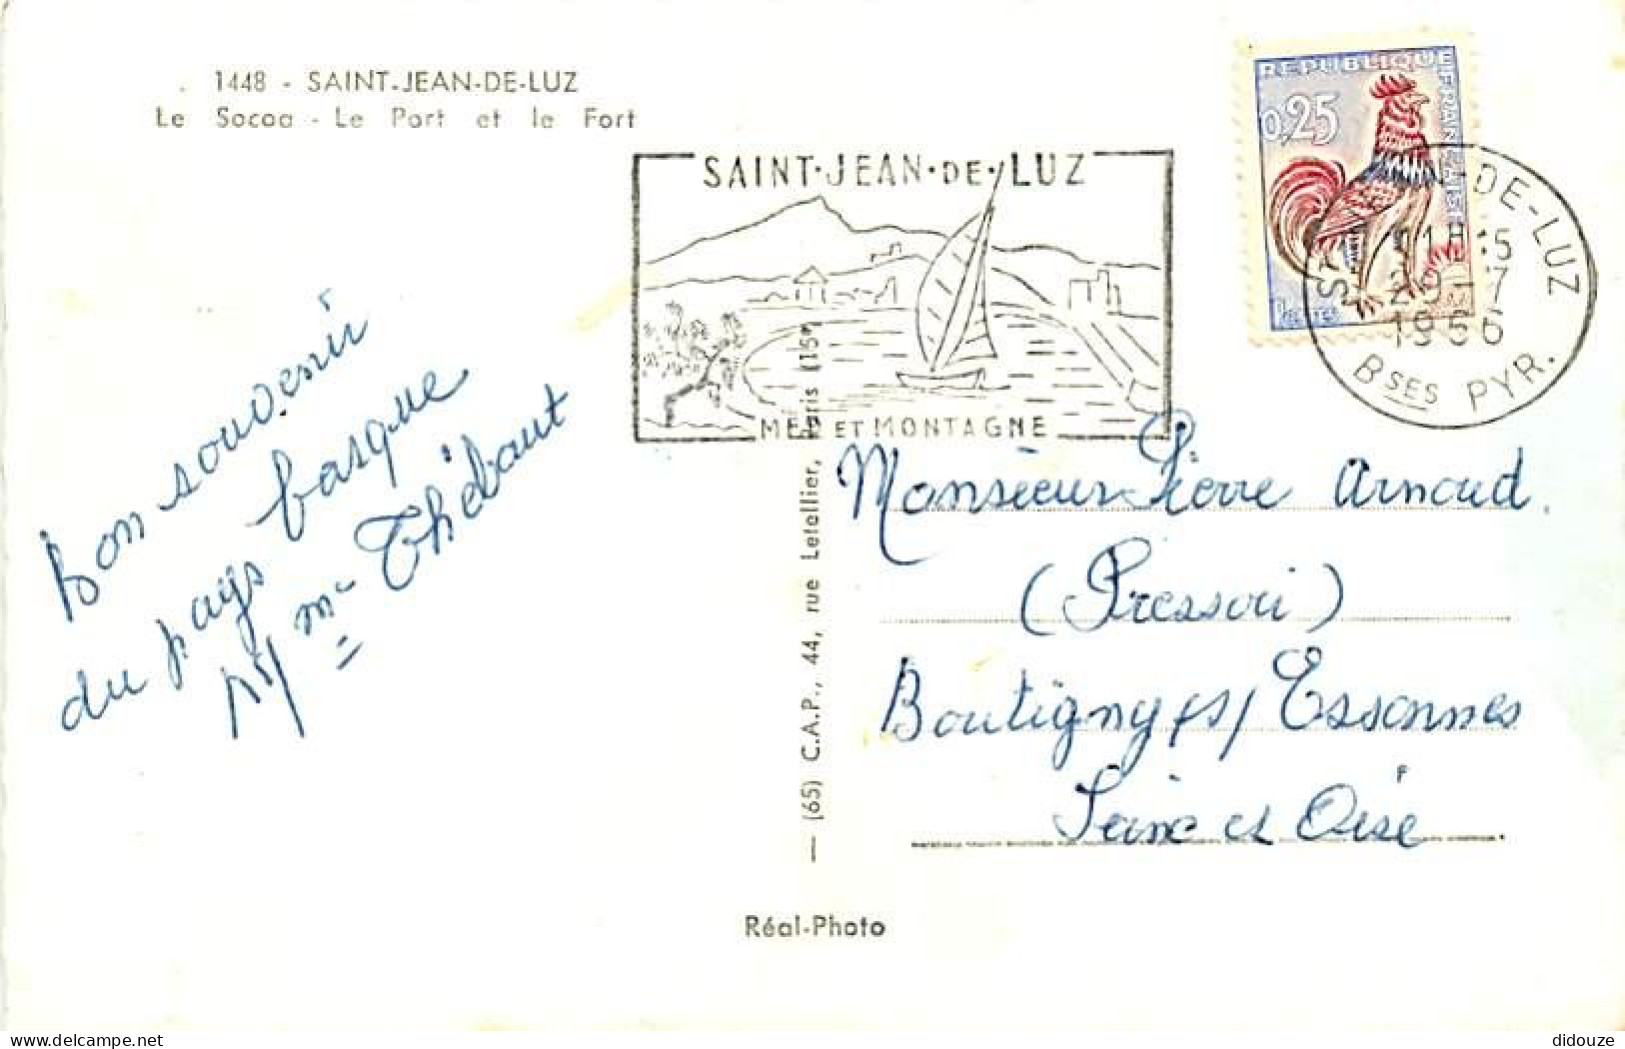 1448 - SAINT-JEAN-DE-LUZ
Le Socoa - Le Port et le Fort
SAINT-JEAN-DE-LUZ
MER ET MONTAGNE
REPUBLIQUE FRANÇAISE
0,25
-DE-LUZ
29-7
1966
BSES PYR.
Bon souvenir
du pays basque
Thébaut
Monsieur Pierre Arnoud.
(Pressoir)
Boutigny /s/ Essonnes
Seine et Oise
— (65) C.A.P., 44, rue Letellier, Paris (15e
Réal-Photo
delcampe.net
didouze